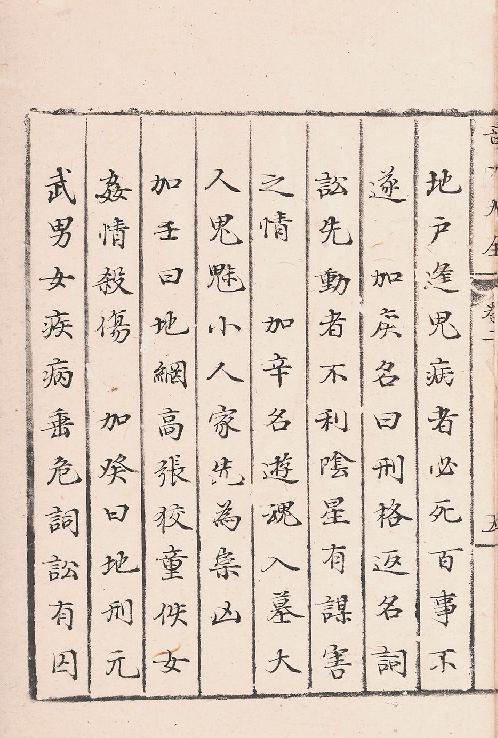 地户逢鬼病者必死百事不
遂　加庚名曰刑格返名詞
訟先動者不利陰星有謀害
之情　加辛名遊魂入墓大
人鬼魅小人家先為祟凶
加壬曰地網高張狡童佚女
姦情殺傷　加癸曰地刑元
武男女疾病垂危詞訟有囚